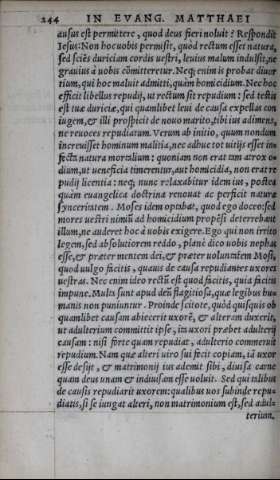 244 IN EVANG. MATTHAEI
ausus est permittere, quod deus fieri noluit? Respondit
Iesus: Non hoc uobis permisit, quòd rectum esset natura,
sed sciẽs duriciam cordis uestri, leuius malum indulsit, ne
grauius à uobis cõmitteretur. Neq; enim is probat diuor
tium, qui hoc maluit admitti, quàm homicidium. Nec hoc
efficit libellus repudij, ut rectum sit repudium: sed testis
est tuæ duriciæ, qui quamlibet leui de causa expellas con
iugem, & illi prospicit de nouo marito, tibi ius adimens,
ne reuoces repudiatam. Verum ab initio, quum nondum
increuisset hominum malitia, nec adhuc tot uitijs esset in-
fecta natura mortalium: quoniam non erat tam atrox o-
dium, ut ueneficia timerentur, aut homicidia, non erat re
pudij licentia: neq; nunc relaxabitur idem ius, postea
quàm euangelica doctrina renouat ac perficit naturæ
synceritatem. Moses idem optabat, quod ego doceo: sed
mores uestri nimiũ ad homicidium propẽsi deterrebant
illum, ne auderet hoc à uobis exigere. Ego qui non irrito
legem, sed absolutiorem reddo, planè dico uobis nephas
esse, & præter mentem dei, & præter uoluntatem Mosi,
quod uulgo facitis, quauis de causa repudiantes uxores
uestras. Nec enim ideo rectũ est quod facitis, quia facitis
impune. Multa sunt apud deũ flagitiosa, quæ legibus hu-
manis non puniuntur. Proinde scitote, quòd quisquis ob
quamlibet causam abiecerit uxorẽ, & alteram duxerit,
ut adulterium committit ipse, ita uxori præbet adulterij
causam: nisi fortè quam repudiat, adulterio commeruit
repudium. Nam quæ alteri uiro sui fecit copiam, iã uxor
esse desijt, & matrimonij ius ademit sibi, diuisa carne
quam deus unam & indiuisam esse uoluit. Sed qui iuibus
de causis repudiarit uxorem: qualibus uos subinde repu-
diatis, si se iungat alteri, non matrimonium est, sed adul-
terium.